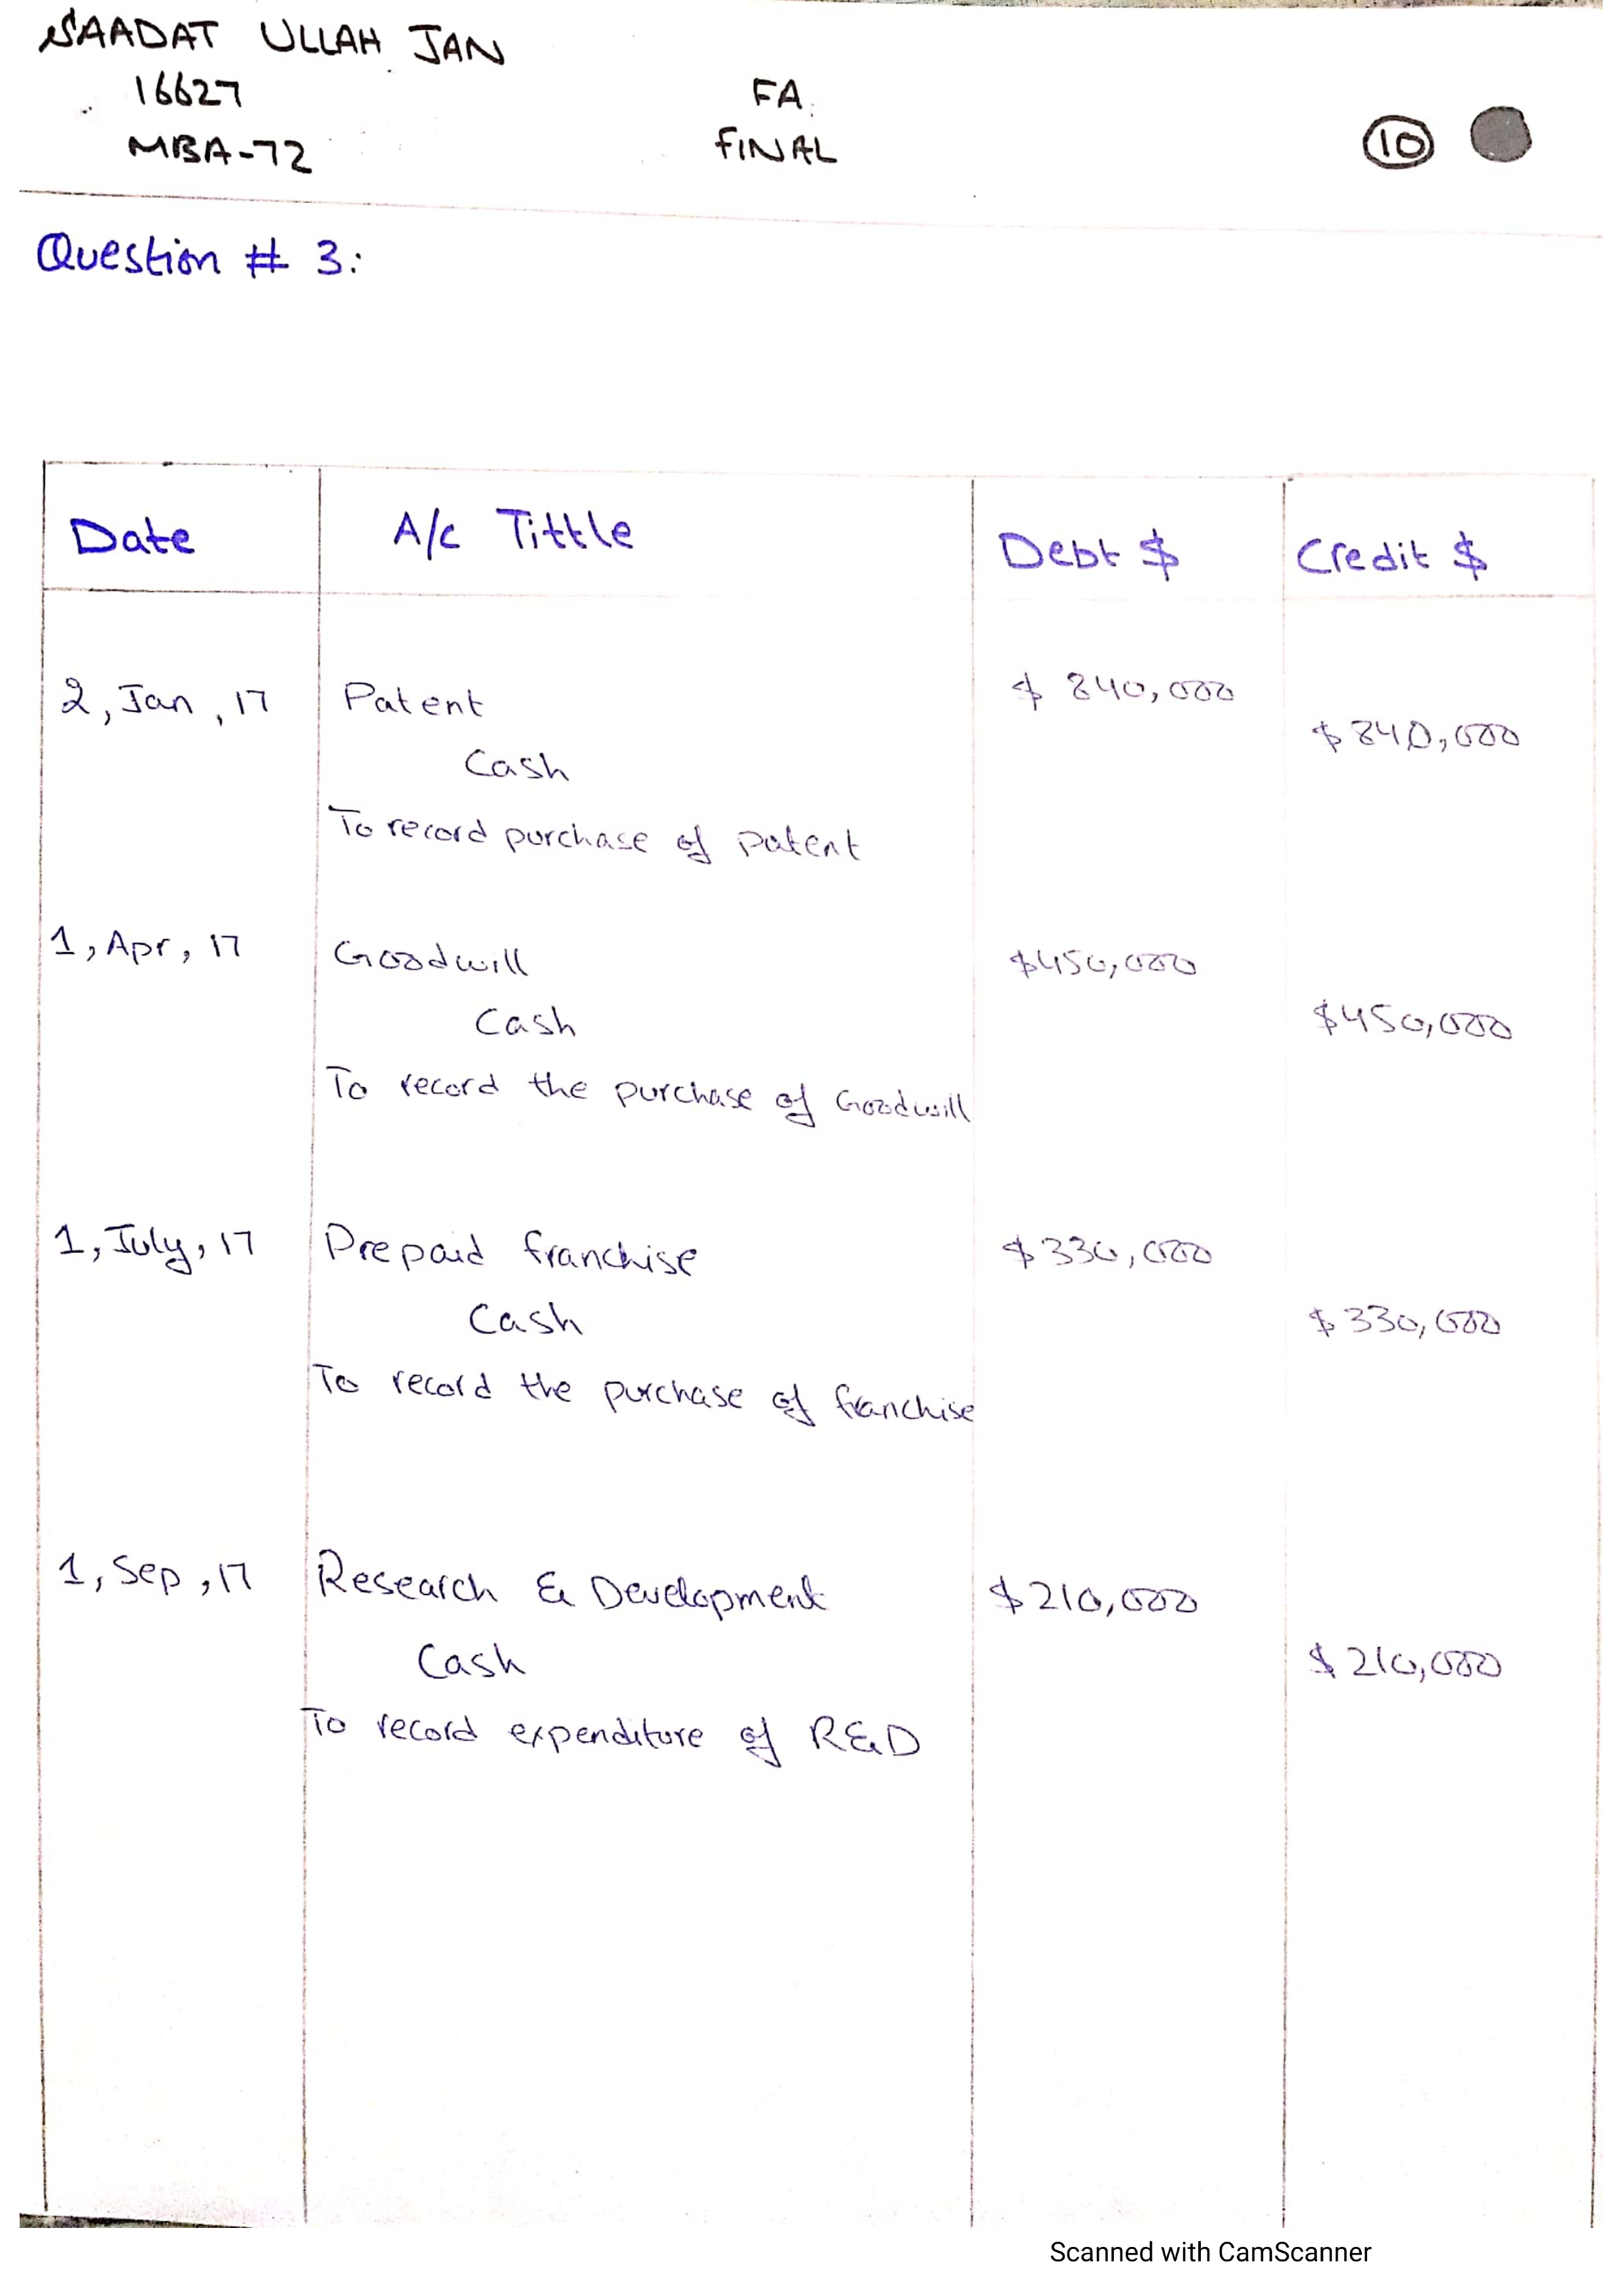 SAADAT ULLAH JAN
16627 FA
MBA-72 FINAL 10
Question # 3:
Date A/c Tittle Debt $ Credit $
2, Jan, 17 Patent $ 840,000
Cash $ 840,000
To record purchase of patent
1, Apr, 17 Goodwill $450,000
Cash $450,000
To record the purchase of Goodwill
1, July, 17 Prepaid franchise $330,000
Cash $330,000
To record the purchase of franchise
1, Sep, 17 Research & Development $210,000
Cash $210,000
To record expenditure of R&D
Scanned with CamScanner